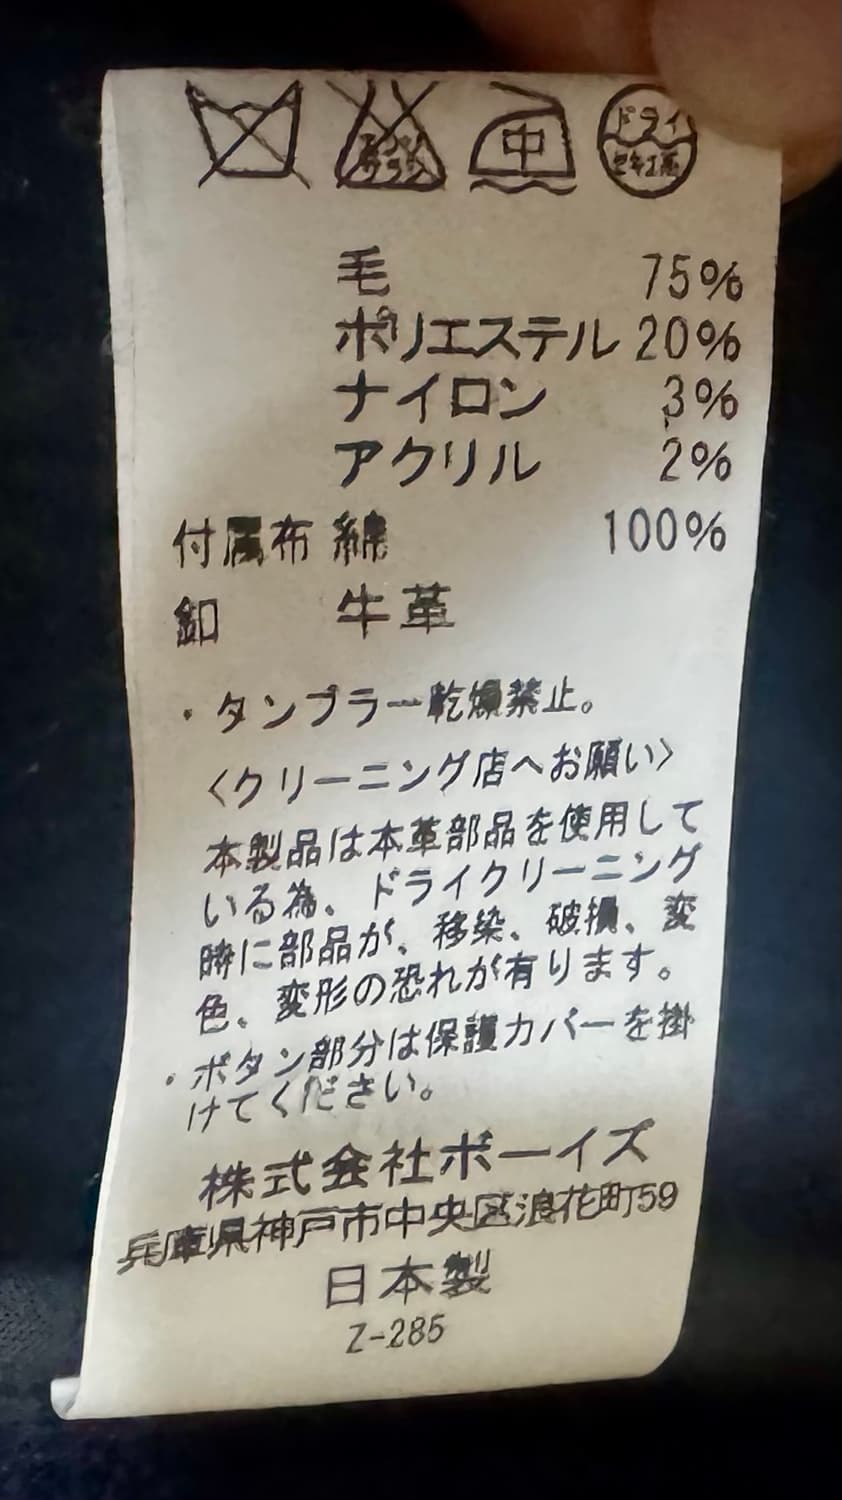 中
ドライ
セキユ系
毛 75%
ポリエステル 20%
ナイロン 3%
アクリル 2%
付属布 綿 100%
釦 牛革
・タンブラー乾燥禁止。
〈クリーニング店へお願い〉
本製品は本革部品を使用して
いる為、ドライクリーニング
時に部品が、移染、破損、変
色、変形の恐れが有ります。
・ボタン部分は保護カバーを掛
けてください。
株式会社ボーイズ
兵庫県神戸市中央区浪花町59
日本製
Z-285